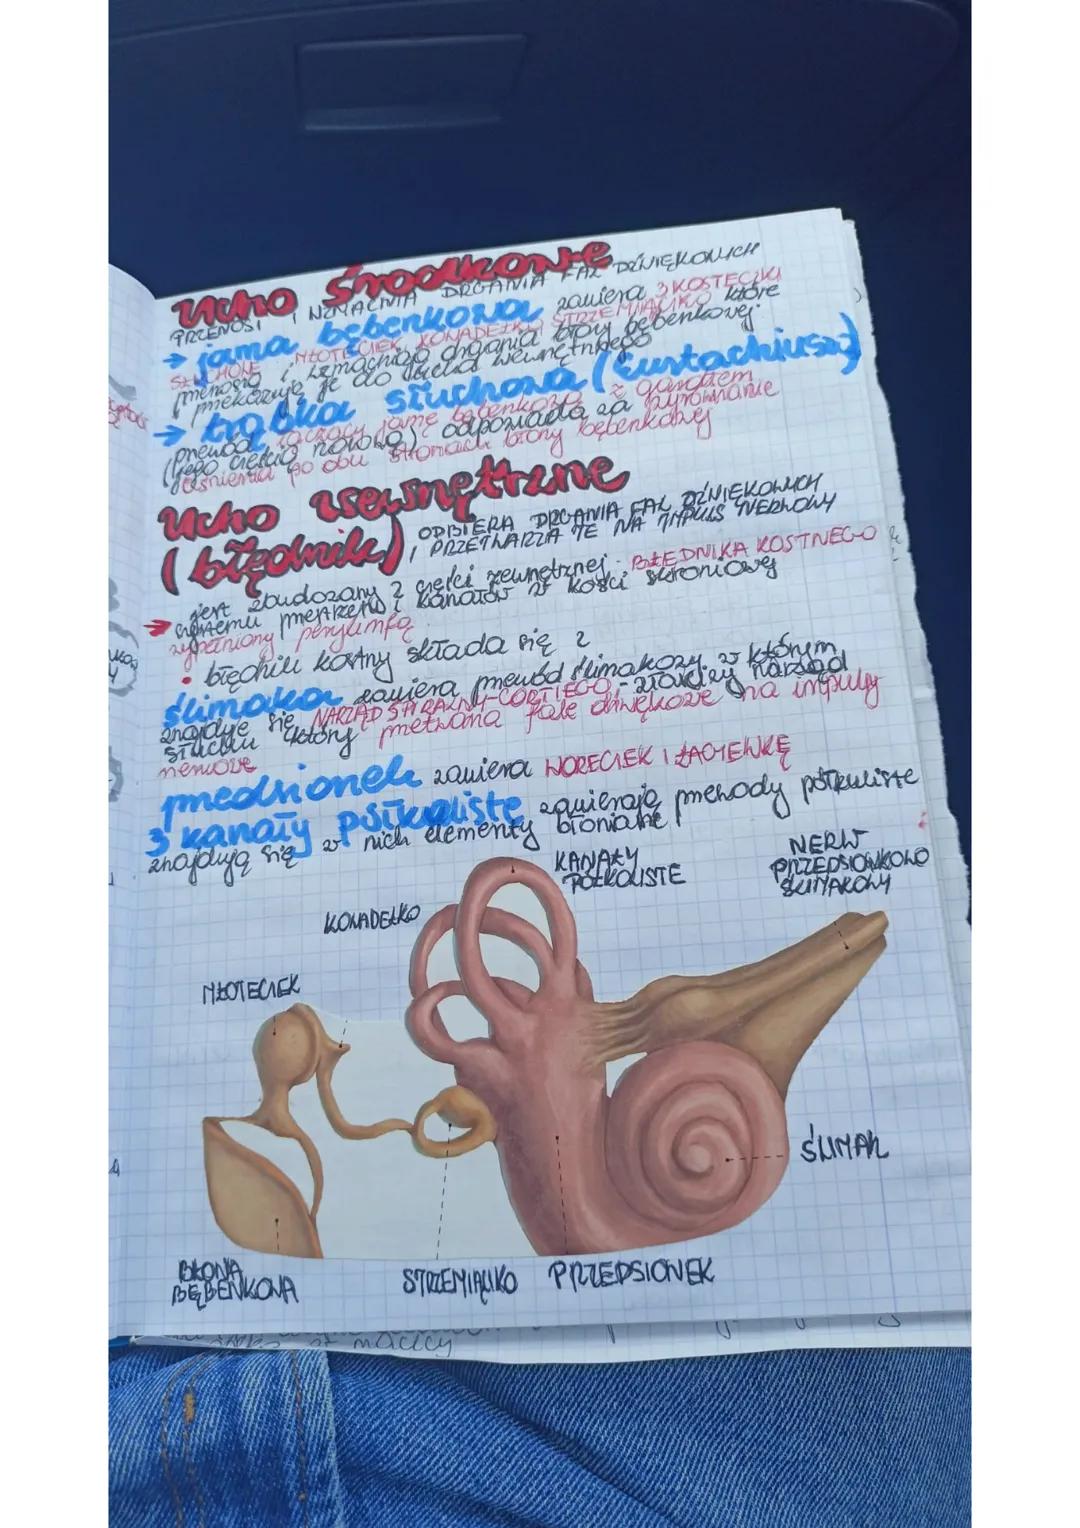 Ucho środkowe
PRZENOSI I WZMACNIA DRGANIA FAL DŹWIĘKOWYCH
→ jama bębenkowa zawiera 3 KOSTECZKI
SŁUCHOWE MŁOTECZEK, KOWADEŁKO, STRZEMIĄCZKO które
przenoszą i wzmacniają drgania błony bębenkowej
i przekazują je do ucha wewnętrznego
→ trąbka słuchowa (Eustachiusza)
przewód łączący jamę bębenkową z gardłem
(jego częścią nosową) odpowiada za wyrównanie
ciśnienia po obu stronach błony bębenkowej
Ucho wewnętrzne
(błędnik) ODBIERA DRGANIA FAL DŹWIĘKOWYCH
I PRZETWARZA TE NA IMPULS NERWOWY
→ jest zbudowany z części zewnętrznej: BŁĘDNIKA KOSTNEGO
systemu przestrzeni i kanałów w kości skroniowej
wypełniony perylimfą
• błędnik kostny składa się z
ślimaka zawiera przewód ślimakowy, w którym
znajduje się NARZĄD SPIRALNY-CORTIEGO, - właściwy narząd
słuchu który przetwarza fale dźwiękowe na impulsy
nerwowe
przedsionek zawiera WORECZEK I ŁAGIEWKĘ
3 kanały półkoliste zawierają przewody półkoliste
znajdują się w nich elementy błoniaste
KANAŁY
PÓŁKOLISTE
NERW
PRZEDSIONKOWO
ŚLIMAKOWY
KOWADEŁKO
MŁOTECZEK
ŚLIMAK
BŁONA
BĘBENKOWA
STRZEMIĄCZKO
PRZEDSIONEK